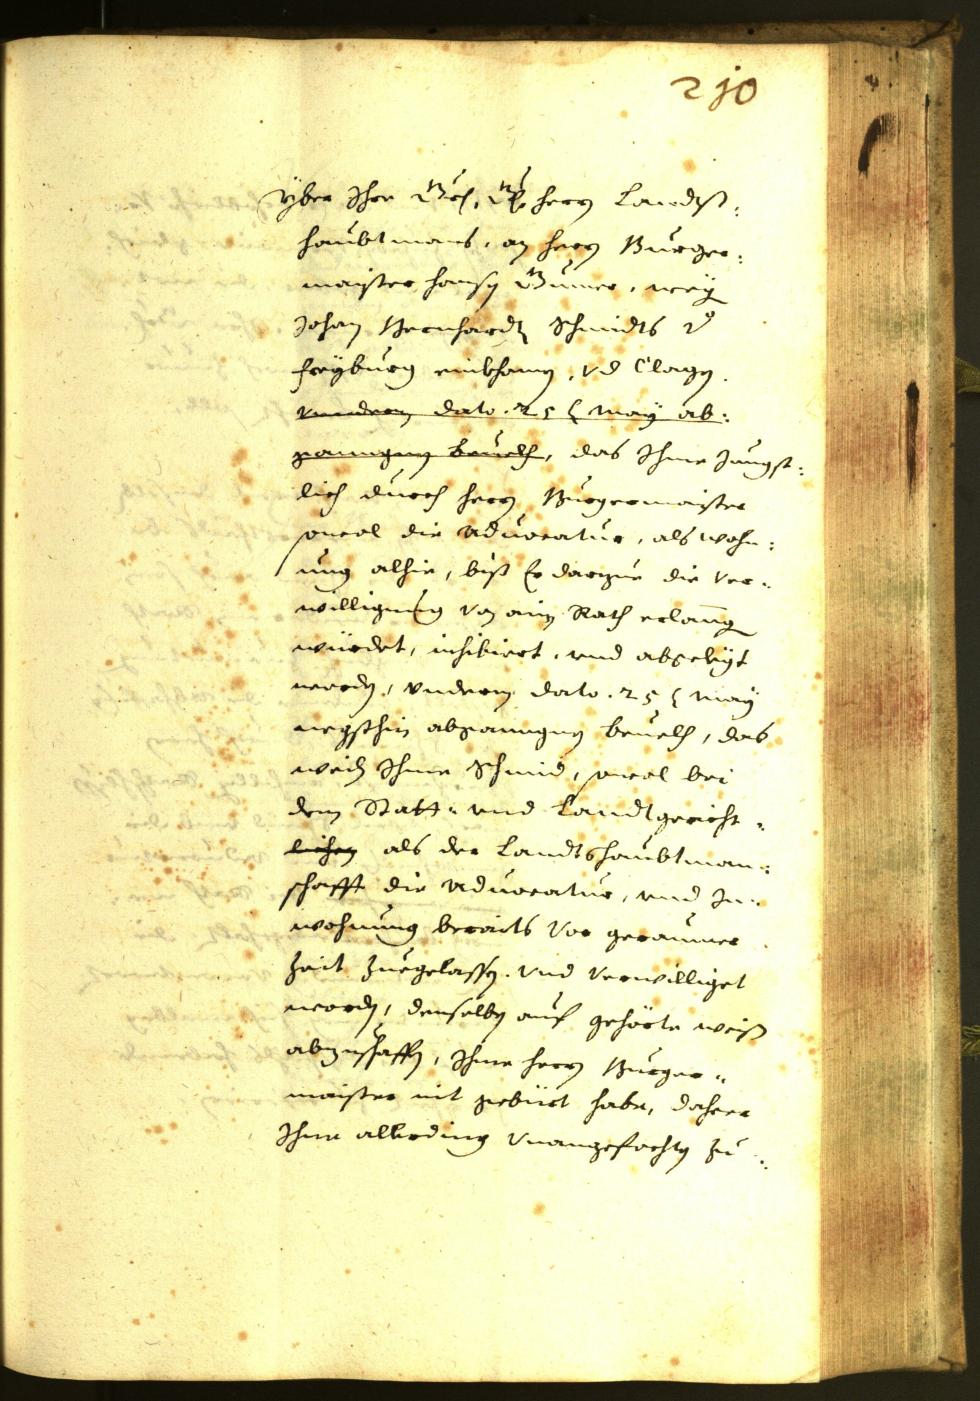 210
Yber Ihr Gn. herrn Landts¬
haubtmans, an herrn Burger¬
maister Hansen, weg
Johan Bernhardt Schmidts zu
Freyburg einkhomen, vnd Clagen
vnderm dato 25 May ab¬
gangnen beuelh, das Ihme Jüngst¬
lich durch herrn Burgermaister
souol die aduocatur, als wohn¬
ung alhie, biß Er darzue die ver¬
willigung von ainem Rath erlanng
würdet, inhibiert, vnd abgelegt
worden, vnderm dato 25 May
negsthin abganngnen beuelh, das
weilen Ihme Schmid, souol bei
dem Statt- vnd Landtgericht¬
lichen als der Landtshaubtman¬
schafft die aduocatur, vnd In¬
wohnung beraits vor geraumer
Zeit zuegelassen vnd verwilliget
worden, denselben auf gehörte weiß
abzuschaffen, Ihme herrn Burger¬
maister nit gebürt habe, dahero
Ihne allerding vnangefochten zu¬